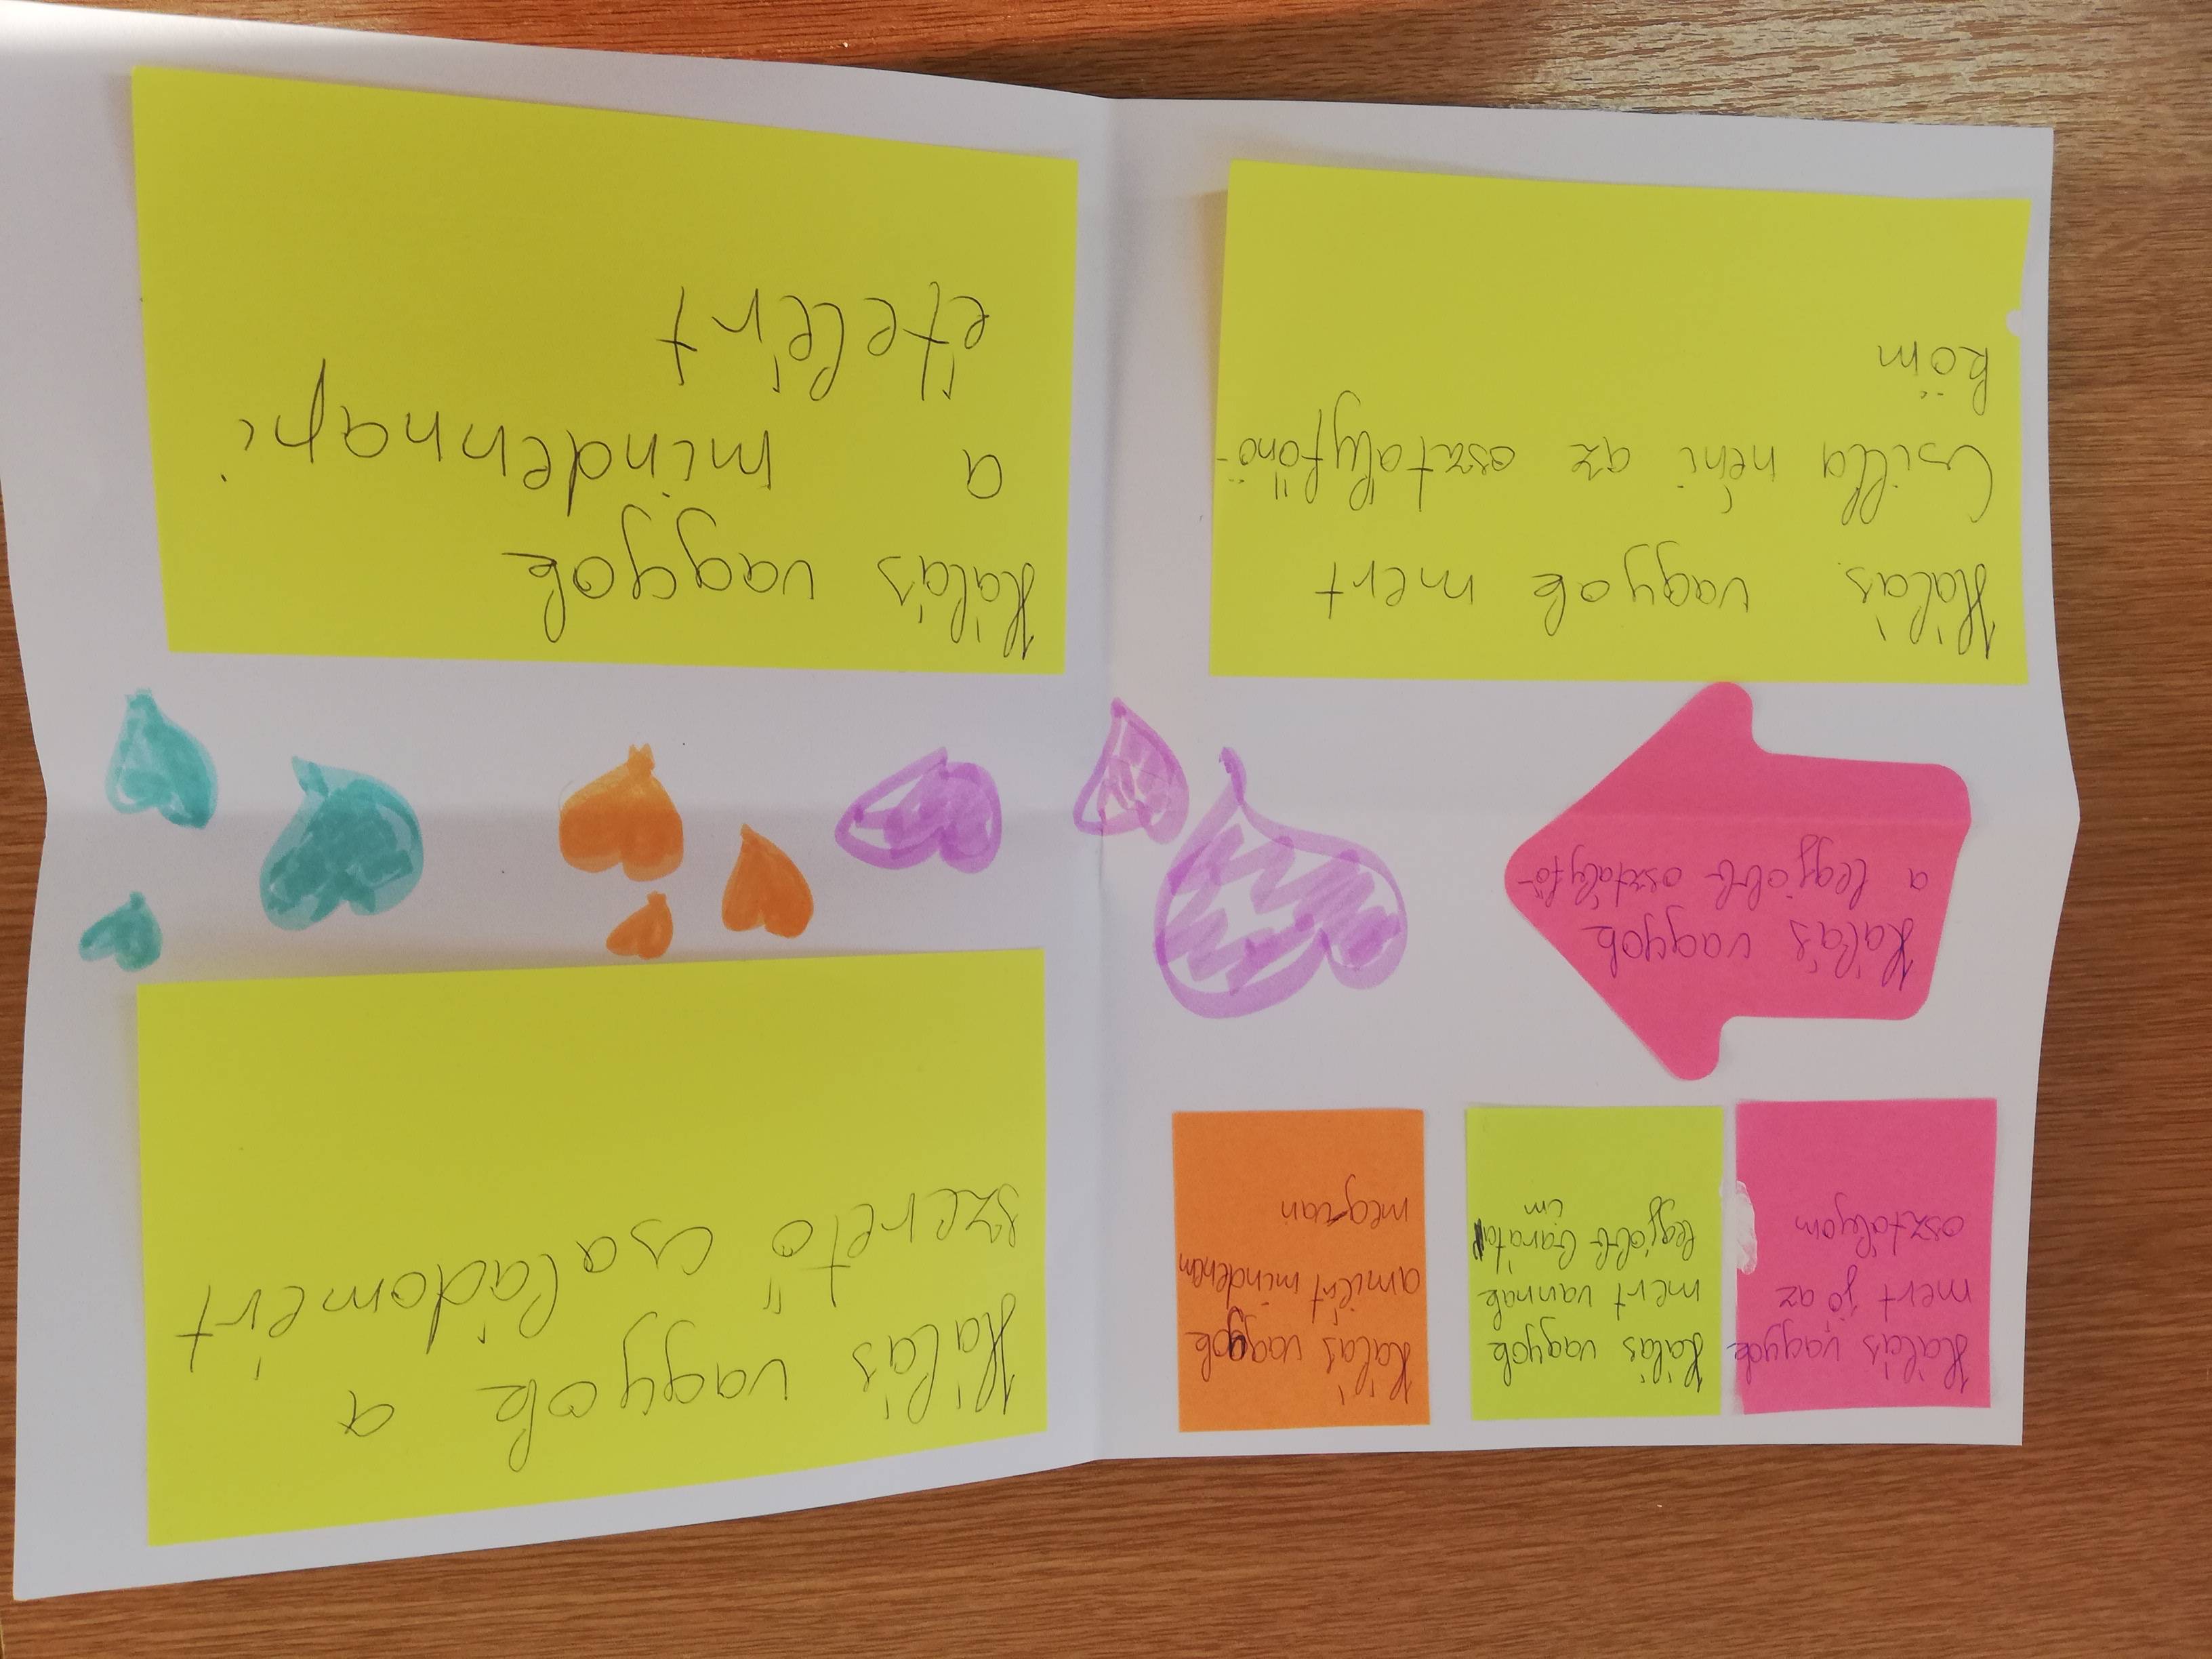 Hálás vagyok
mert jó az
osztályom
Hálás vagyok
mert vannak
legjobb baráta
im
Hálás vagyok
amiért mindenem
megvan
Hálás vagyok a
szerető családomért
Hálás vagyok
a legjobb osztályfő-
Hálás vagyok mert
Csilla néni az osztályfőnö-
köm
Hálás vagyok
a mindennapi
ételért